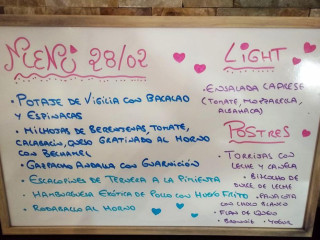 MENÚ 28/02
• POTAJE DE VIGILIA CON BACALAO
Y ESPINACAS
• MILHOJAS DE BERENJENAS, TOMATE,
CALABACIN, QUESO GRATINADO AL HORNO
CON BECHAMEL
• GAZPACHO ANDALUZ CON GUARNICIÓN
• ESCALOPINES DE TERNERA A LA PIMIENTA
• HAMBURGUESA EXÓTICA DE POLLO CON HUEVO FRITO
• RODABALLO AL HORNO
LIGHT
• ENSALADA CAPRESE
(TOMATE, MOZZARELLA,
ALBAHACA)
POSTRES
• TORRIJAS CON
LECHE Y CANELA
• BIZCOCHO DE
DULCE DE LECHE
• PANACOTA
CON CHOCO BLANCO
• FLAN DE HUEVO
• BROWNIE • YOGUR